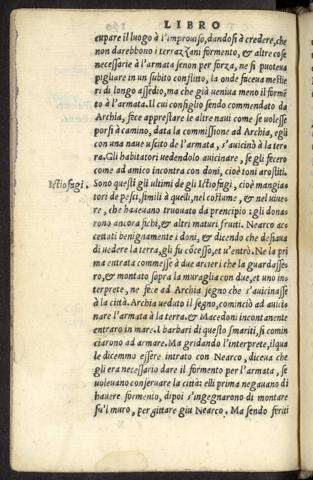 LIBRO
cupare il luogo à l'improuiso, dandosi à credere, che
non darebbono i terazzani formento, & altre cose
necessarie à l'armata senon per forza, ne si poteua
pigliare in un subito conflitto, la onde faceua mestie
ri di longo assedio, ma che già veniua meno il formē
to à l'armata. Il cui consiglio sendo commendato da
Archia, fece apprestare le altre naui come se uolesse
porsi à camino, data la commissione ad Archia, egli
con una naue uscito de l'armata, s'auicinò à la ter-
ra. Gli habitatori uedendolo auicinare, se gli fecero
come ad amico incontra con doni, cioè toni arostiti.
Ictiofagi. Sono questi gli ultimi de gli Ictiofagi, cioè mangia-
tori de pesci, simili à quelli, nel costume, & nel uiuer-
re, che haueuano truouato da principio: gli dona-
rono ancora fichi, & altri maturi frutti. Nearco ac-
cettati benignamente i doni, & dicendo che desiaua
di uedere la terra, gli fu cōcesso, et u'entrò. Ne la pri
ma entrata commesse à due arcieri che la guardasse-
ro, & montato sopra la muraglia con due, et uno in-
terprete, ne fece ad Archia segno che s'auicinasse
à la città. Archia ueduto il segno, cominciò ad auici-
nare l'armata à la terra, & Macedoni incontanente
entraro in mare. I barbari di questo smariti, si comin
ciarono ad armare. Ma gridando l'interprete, ilqua
le dicemmo essere intrato con Nearco, diceua che
gli era necessario dare il formento per l'armata, se
uoleuano conseruare la città: elli prima negauano di
hauere formento, dipoi s'ingegnarono di montare
su'l muro, per gittare giu Nearco. Ma sendo feriti